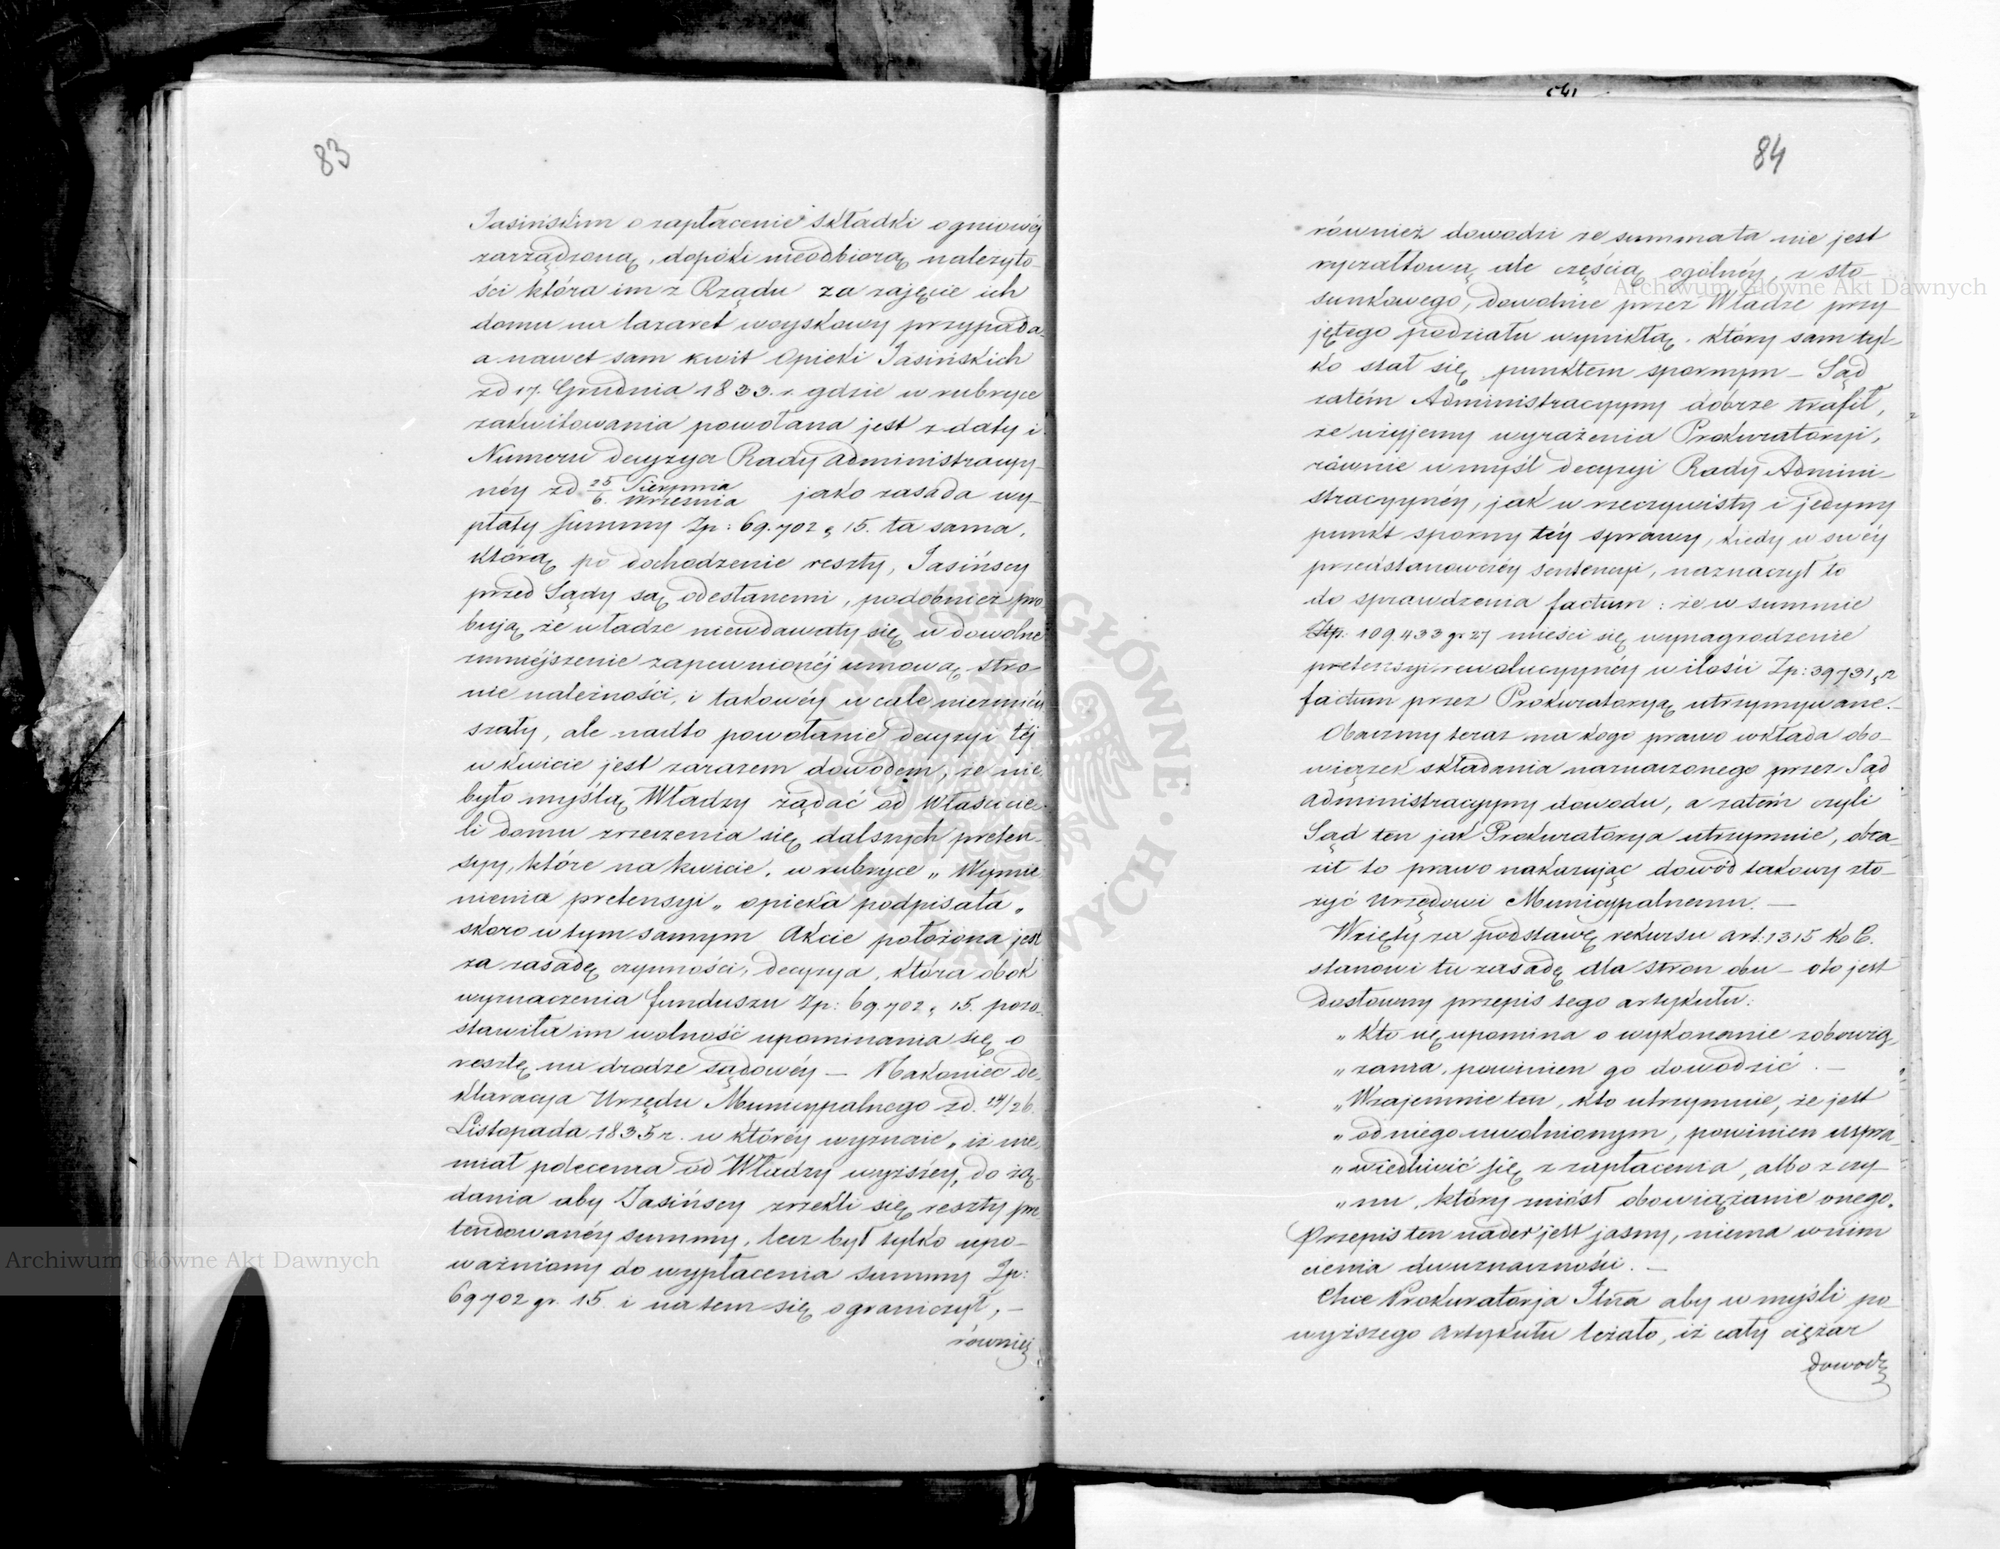 83
Jasińskim o zapłacenie składki ogniowéy
zarządzoną, dopóki nieodbiorą należyto-
ści która im z Rządu za zajęcie ich
domu na lazaret woyskowy przypada-
a nawet sam kwit Opieki Jasińskich
zd 17. Grudnia 1833. r. gdzie w rubryce
zakwitowania powołana jest z daty i
Numeru decyzya Rady Administracyy-
néy zd 25 Sierpnia / 6. Września jako zasada wy-
płaty summy Zp: 69.702 g 15. ta sama,
którą po dochodzenie reszty, Jasińscy
przed Sądy są odesłanemi, podobnież pro
bują że władze niewdawały się w dowolne
zmniejszenie zapewnionéj umową stro-
nie należności, i takowéy w cale niezmniéy
szały, ale nadto powołanie decyzyi téj
w kwicie jest zarazem dowodem, że nie
było myślą Władzy żądać od Właścicie-
li domu zrzeczenia się dalszych preten-
syy, które na kwicie, w rubryce „ Wymie
nienia pretensyi „ opieka podpisała „
skoro w tym samym Akcie położona jest
za zasadę czynności, decyzya, która obok
wyznaczenia funduszu Zp: 69.702 g 15. pozo-
stawiła im wolność upominania się o
resztę na drodze sądowéy — Nakoniec de-
klaracya Urzędu Municypalnego zd. 14/26.
Listopada 1835 r. w któréy wyznaie „ iż nie
miał polecenia od Władzy wyższey, do żą-
dania aby Jasińscy zrzekli się reszty pre-
tendowanéy summy, lecz był tylko upo-
ważniony do wypłacenia summy Zp:
69702 gr. 15. i na tem się ograniczył, —
również
84
również dowodzi że summa ta nie jest
ryczałtową ale częścią ogólnéy, z sto-
sunkowego, dowolnie przez Władze przy
jętego podziału wynikłą, który sam tyl-
ko stał się punktem spornym — Sąd
zatém Administracyyny dobrze trafił,
że użyjemy wyrażenia Prokuratoryi,
równie w myśl decyzyi Rady Admini-
stracyynéy, jak w rzeczywisty i jedyny
punkt sporny téy sprawy, kiedy w swéy
przedstanowczéy sentencyi, naznaczył to
do sprawdzenia factum: że w summie
Złp: 109.433 gr 27 mieści się wynagrodzenie
pretensyi rewolucyynéy w ilości Zp: 39731 g 12
factum przez Prokuratoryą utrzymywane.—
Obaczmy teraz na kogo prawo wkłada obo-
wiązek składania naznaczonego przez Sąd
Administracyyny dowodu, a zatém czyli
Sąd ten jak Prokuratorya utrzymuie, obra-
ził to prawo nakazując dowód takowy zło-
żyć Urzędowi Municypalnemu. —
Wzięty za podstawę rekursu art: 1315 K. C.
stanowi tu zasadę dla stron obu — oto jest
dosłowny przepis tego artykułu:
„ Kto się upomina o wykonanie zobowią-
„ zania, powinien go dowodzić. —
„ Wzajemnie ten, kto utrzymuie, że jest
„ od niego uwolnionym, powinien uspra-
„ wiedliwić się z zapłacenia, albo z czy-
„ nu, który zniósł obowiązanie onego.
Przepis ten nader jest jasny, niema w nim
cienia dwuznaczności. —
Chce Prokuratorja Jlna aby w myśli po-
wyższego Artykułu leżało, iż cały ciężar
dowodz
Archiwum Główne Akt Dawnych
Archiwum Główne Akt Dawnych